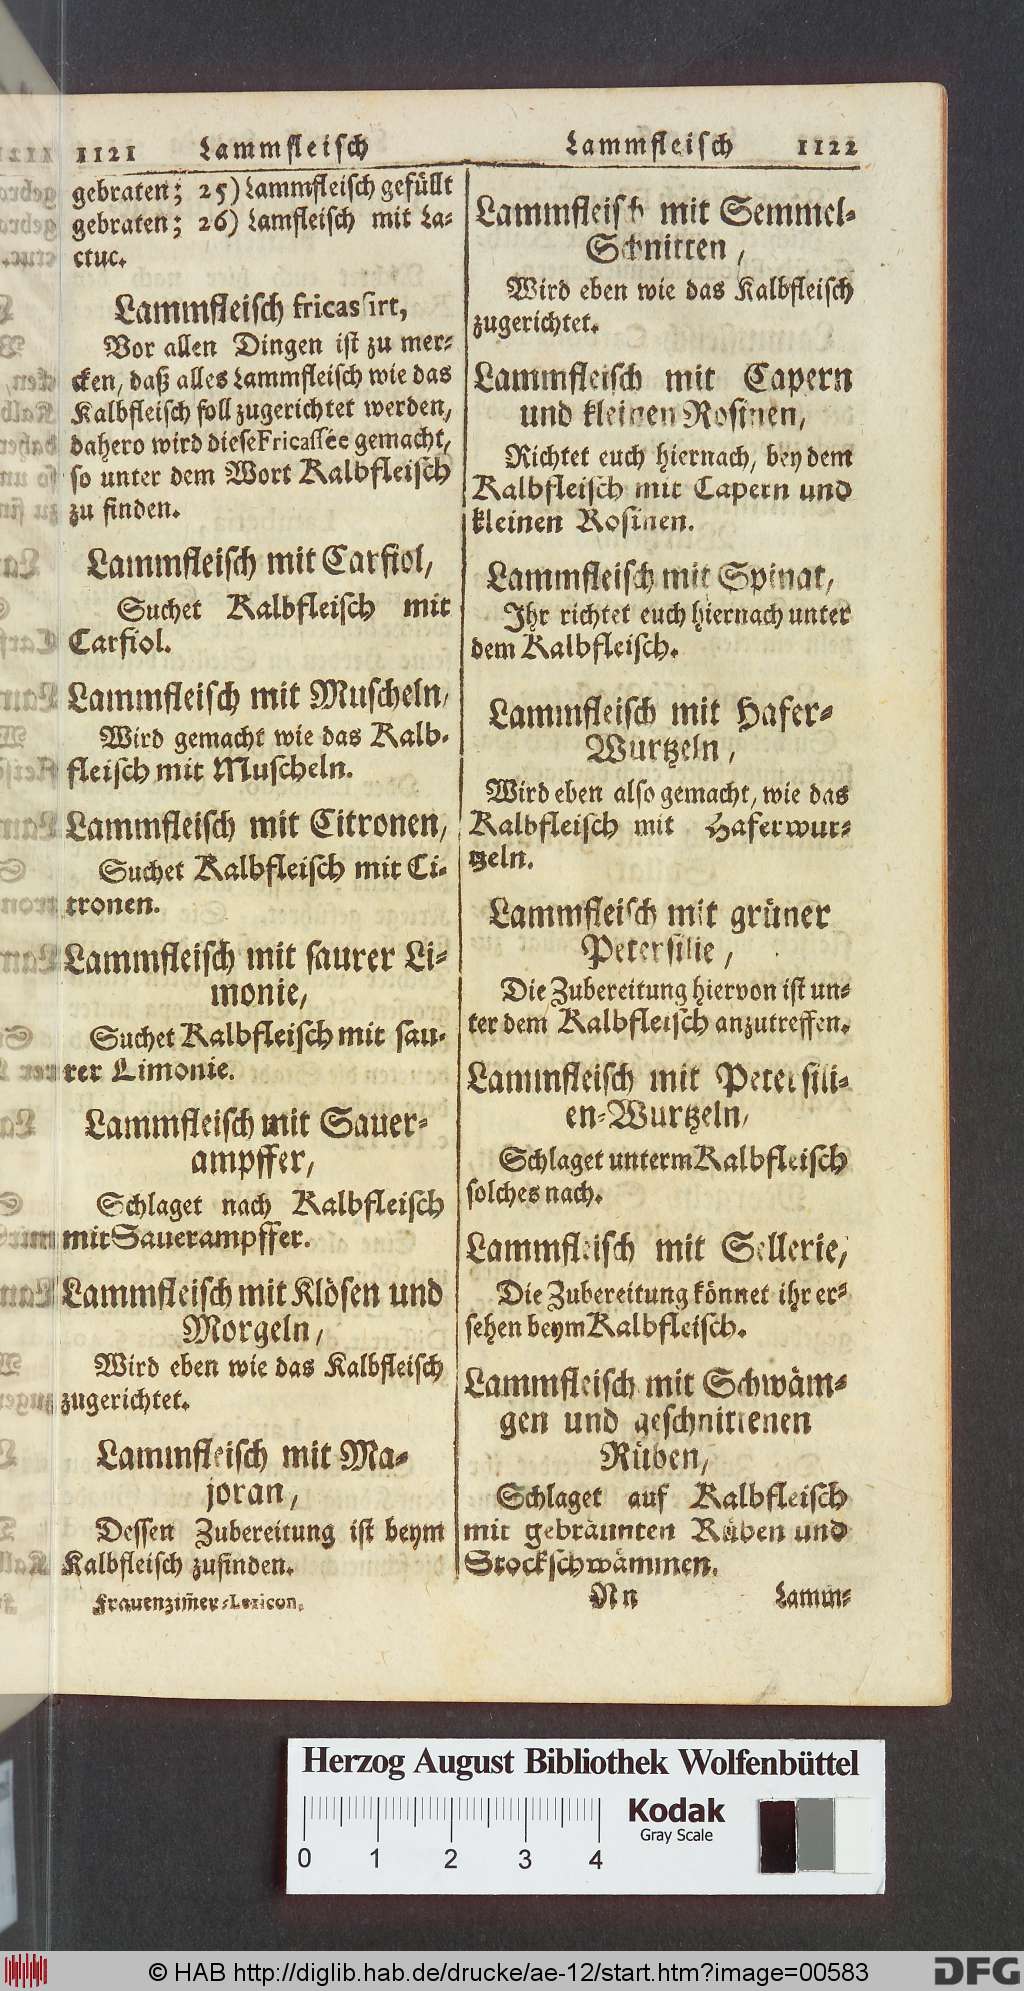 1121 Lammfleisch
gebraten; 25) Lammfleisch gefüllt
gebraten; 26) Lamfleisch mit La-
ctuc.
Lammfleisch fricassirt,
Vor allen Dingen ist zu mer-
cken, daß alles Lammfleisch wie das
Kalbfleisch soll zugerichtet werden,
dahero wird diese Fricassée gemacht,
so unter dem Wort Kalbfleisch
zu finden.
Lammfleisch mit Carfiol,
Suchet Kalbfleisch mit
Carfiol.
Lammfleisch mit Muscheln,
Wird gemacht wie das Kalb-
fleisch mit Muscheln.
Lammfleisch mit Citronen,
Suchet Kalbfleisch mit Ci-
tronen.
Lammfleisch mit saurer Li-
monie,
Suchet Kalbfleisch mit sau-
rer Limonie.
Lammfleisch mit Sauer-
ampffer,
Schlaget nach Kalbfleisch
mit Sauerampffer.
Lammfleisch mit Klösen und
Morgeln,
Wird eben wie das Kalbfleisch
zugerichtet.
Lammfleisch mit Ma-
joran,
Dessen Zubereitung ist beym
Kalbfleisch zufinden.
Frauenzim̃er-Lexicon.
Lammfleisch 1122
Lammfleisch mit Semmel-
Schnitten,
Wird eben wie das Kalbfleisch
zugerichtet.
Lammfleisch mit Capern
und kleinen Rosinen,
Richtet euch hiernach, bey dem
Kalbfleisch mit Capern und
kleinen Rosinen.
Lammfleisch mit Spinat,
Ihr richtet euch hiernach unter
dem Kalbfleisch.
Lammfleisch mit Hafer-
Wurtzeln,
Wird eben also gemacht, wie das
Kalbfleisch mit Haferwur-
tzeln.
Lammfleisch mit grüner
Petersilie,
Die Zubereitung hiervon ist un-
ter dem Kalbfleisch anzutreffen.
Lammfleisch mit Petersili-
en-Wurtzeln,
Schlaget unterm Kalbfleisch
solches nach.
Lammfleisch mit Sellerie,
Die Zubereitung könnet ihr er-
sehen beym Kalbfleisch.
Lammfleisch mit Schwäm-
gen und geschnittenen
Rüben,
Schlaget auf Kalbfleisch
mit gebräunten Rüben und
Stockschwämmen.
Nn Lamm-
Herzog August Bibliothek Wolfenbüttel
Kodak
Gray Scale
0 1 2 3 4
© HAB http://diglib.hab.de/drucke/ae-12/start.htm?image=00583
DFG